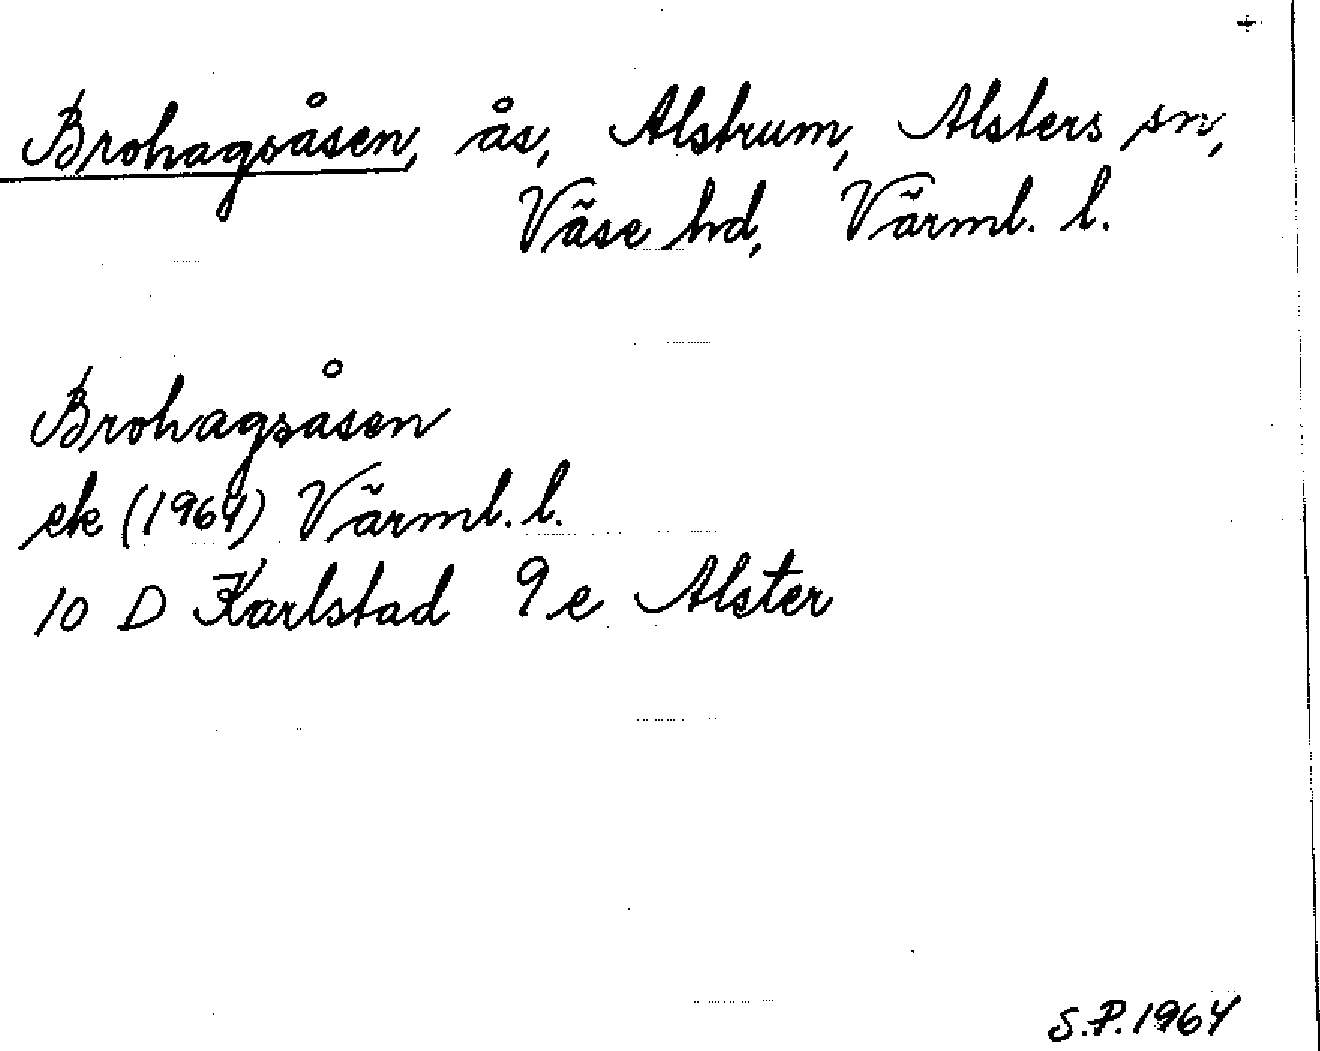 Brohagsåsen, ås, Alstrum, Alsters sn,
Väse hd, Värml. l.
Brohagsåsen
ek (1964) Värml. l.
10 D Karlstad 9e Alster
S.P. 1964